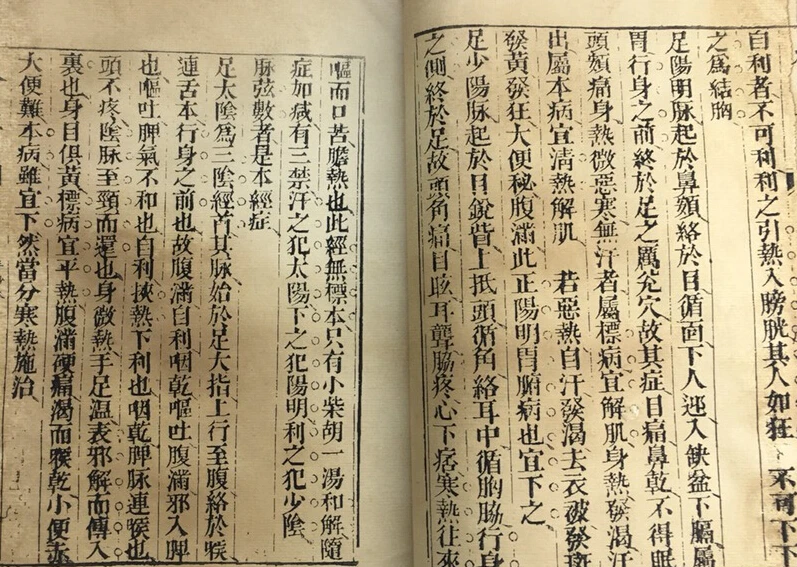 自利者不可利利之引熱入膀胱其人如狂 不可下下
之爲結胸
足陽明脉起於鼻頞絡於目循面下人迎入缺盆下膈屬
胃行身之前終於足之厲兊穴故其症目痛鼻乾不得眠
頭額痛身熱微惡寒無汗者屬標病宜解肌身熱發渴汗
出屬本病宜清熱解肌 若惡熱自汗發渴去衣被發斑
發黃發狂大便秘腹滿此正陽明胃腑病也宜下之
足少陽脉起於目銳眥上抵頭循角絡耳中循胸脇行身
之側終於足故頭角痛目眩耳聾脇疼心下痞寒熱往來
嘔而口苦膽熱也此經無標本只有小柴胡一湯和解隨
症加減有三禁汗之犯太陽下之犯陽明利之犯少陰
脉弦數者是本經症
足太陰爲三陰經首其脉始於足大指上行至腹絡於喉
連舌本行身之前也故腹滿自利咽乾嘔吐腹滿邪入脾
也嘔吐脾氣不和也自利挾熱下利也咽乾脾脉連喉也
頭不疼陰脉至頸而還也身微熱手足温表邪解而傳入
裏也身目俱黃標病宜平熱腹滿硬痛渴而喉乾小便赤
大便難本病雖宜下然當分寒熱施治